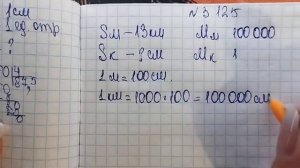 1 см
1 ед. отр
?
N3 125
Sм – 13 км    Mм 100 000
Sк – ? см    Mк 1
1 м = 100 см.
1 км = 1000 · 100 = 100 000 см